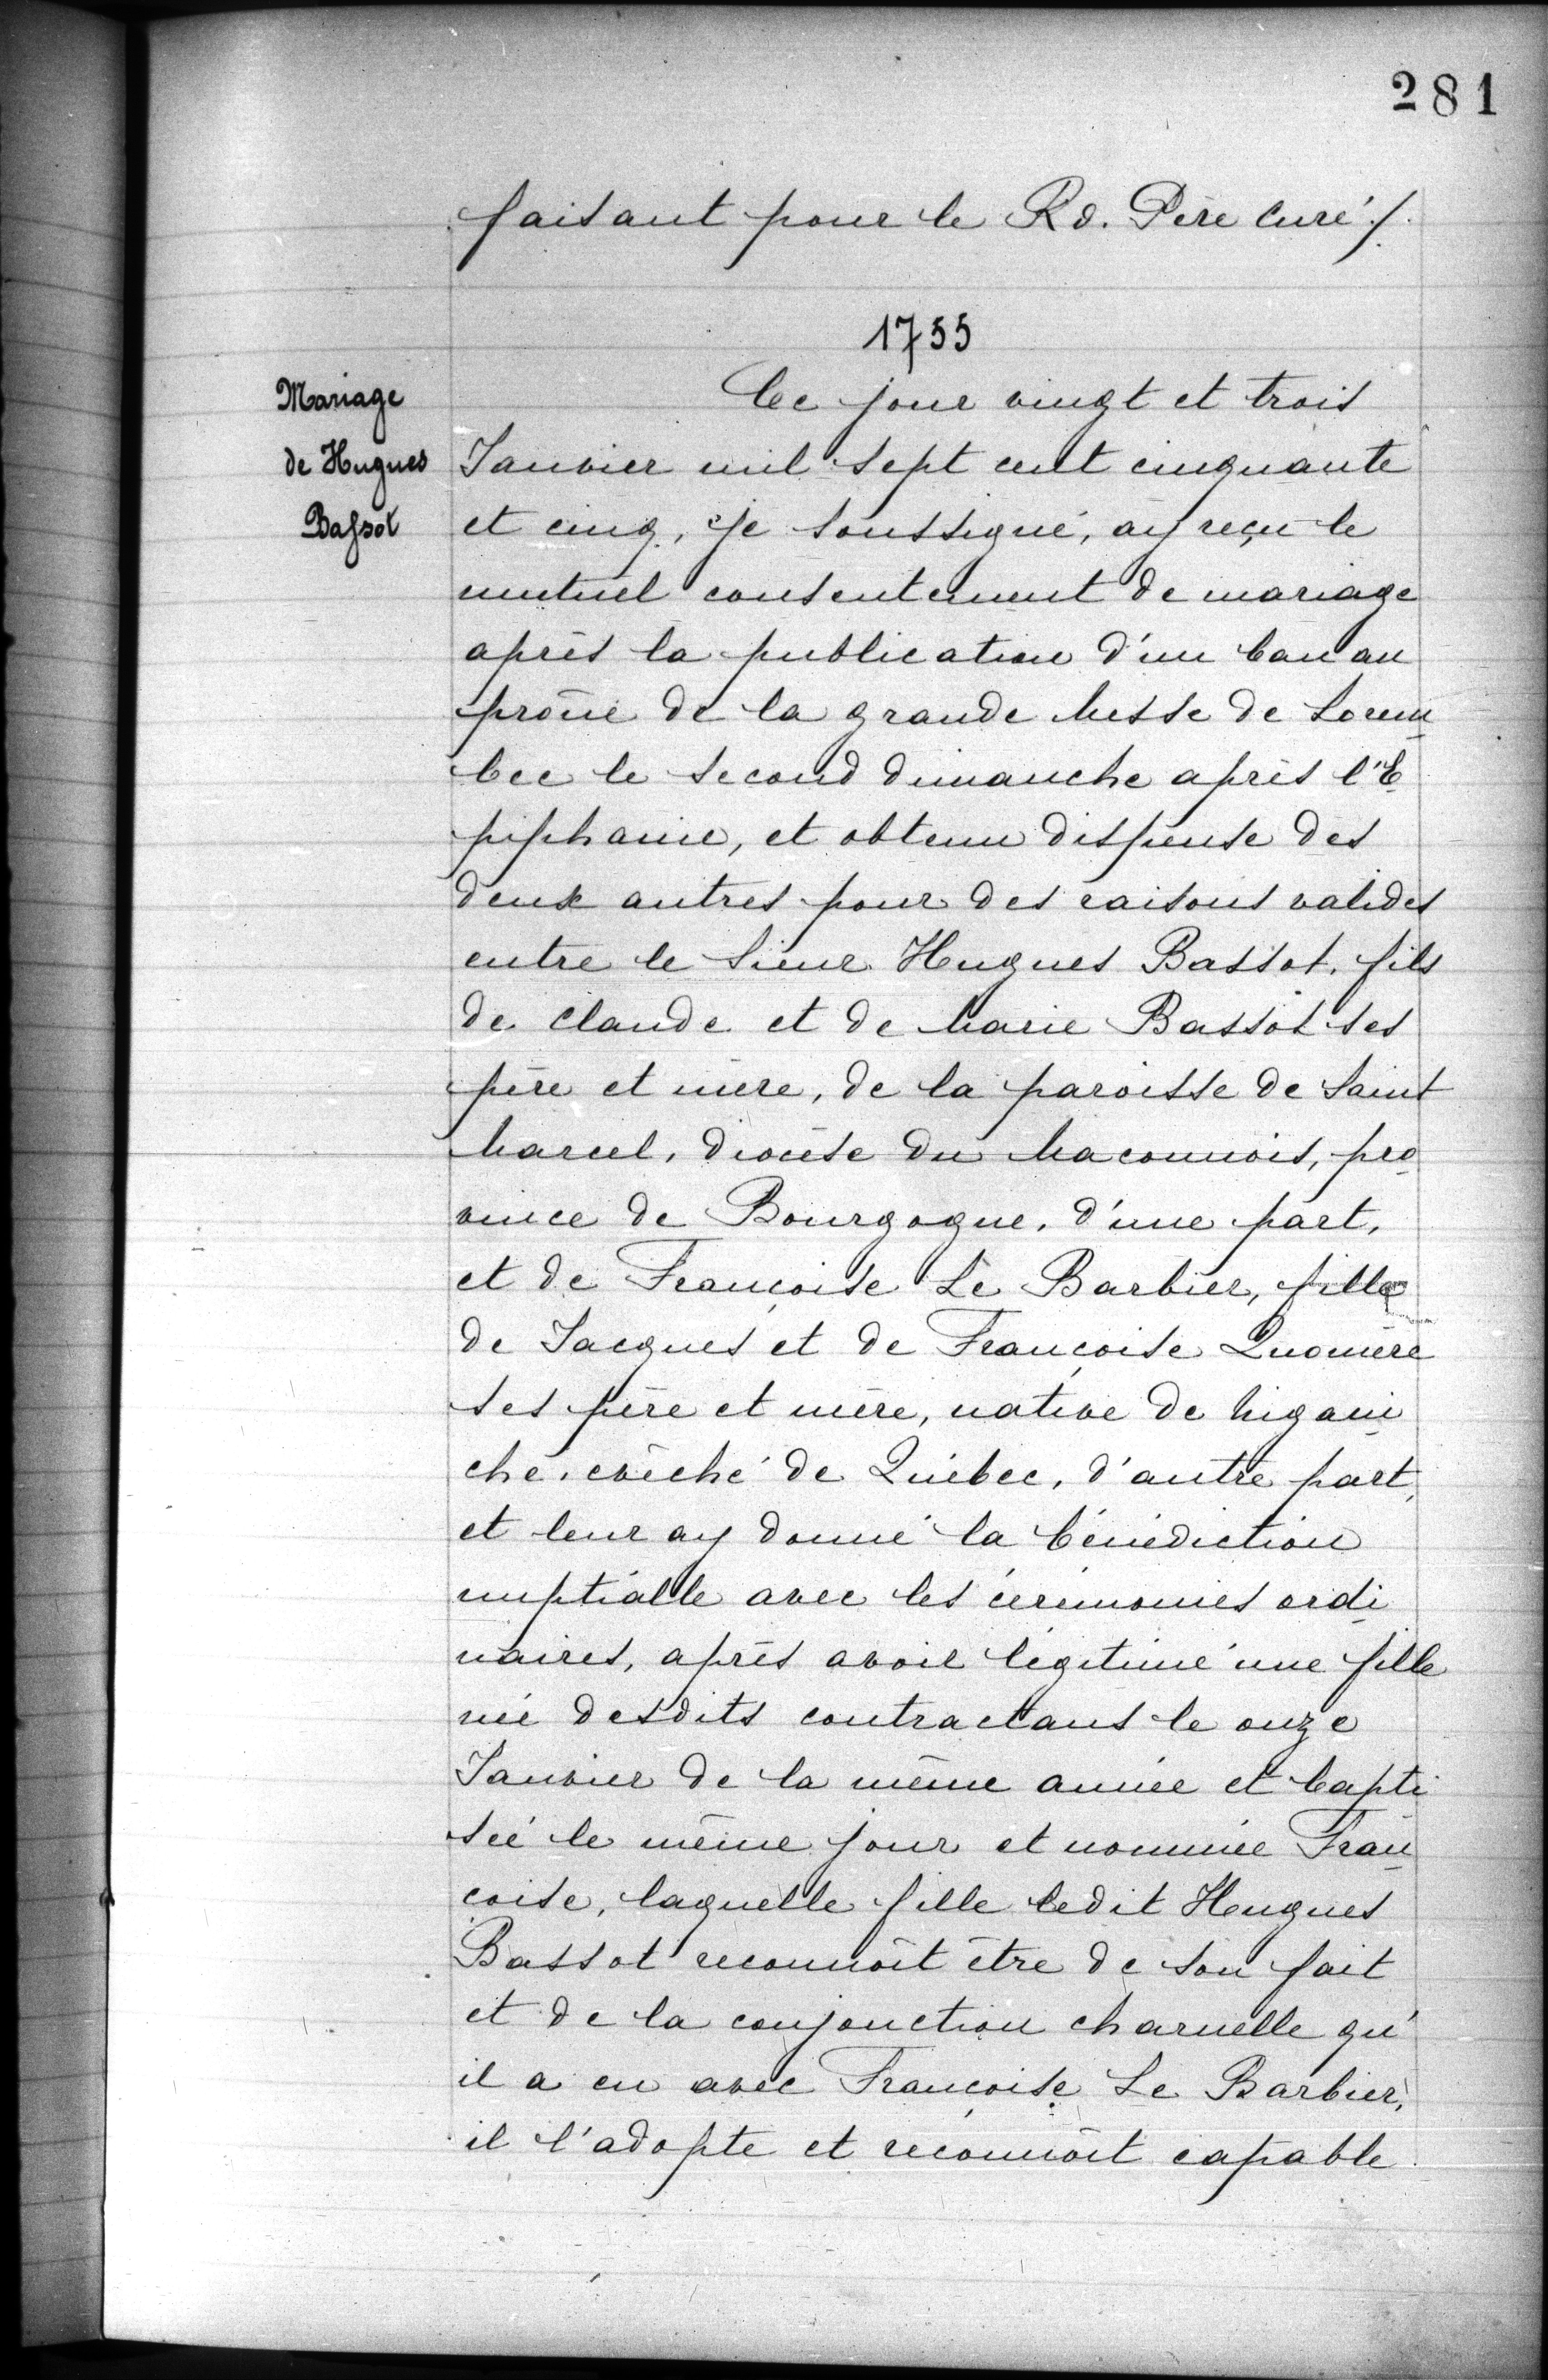 281
faisant pour le Rd. Père Curé ./.
1755
Mariage
de Hugues
Bassot
Ce jour vingt et trois
Janvier mil sept cent cinquante
et cinq, Je soussigné, ay reçu le
mutuel consentement de mariage
après la publication d'un ban au
prône de la grande Messe de Lorem
bec le second dimanche après l'E
piphanie, et obtenu dispense des
deux autres pour des raisons valides
entre le Sieur Hugues Bassot, fils
de Claude et de Marie Bassot ses
père et mère, de la paroisse de Saint
Marcel, diocèse du Maconnois, pro
vince de Bourgogne, d'une part,
et de Françoise Le Barbier, fille
de Jacques et de Françoise Quomère
ses père et mère, native de Nigani
che, evêché de Québec, d'autre part,
et leur ay donné la bénédiction
nuptialle avec les cérémonies ordi
naires, après avoir légitimé une fille
née desdits contractans le onze
Janvier de la même année et bapti
sée le même jour et nommée Fran
çoise, laquelle fille ledit Hugues
Bassot reconnoit être de son fait
et de la conjonction charnelle qu'
il a eu avec Françoise Le Barbier,
il l'adopte et reconnoit capable